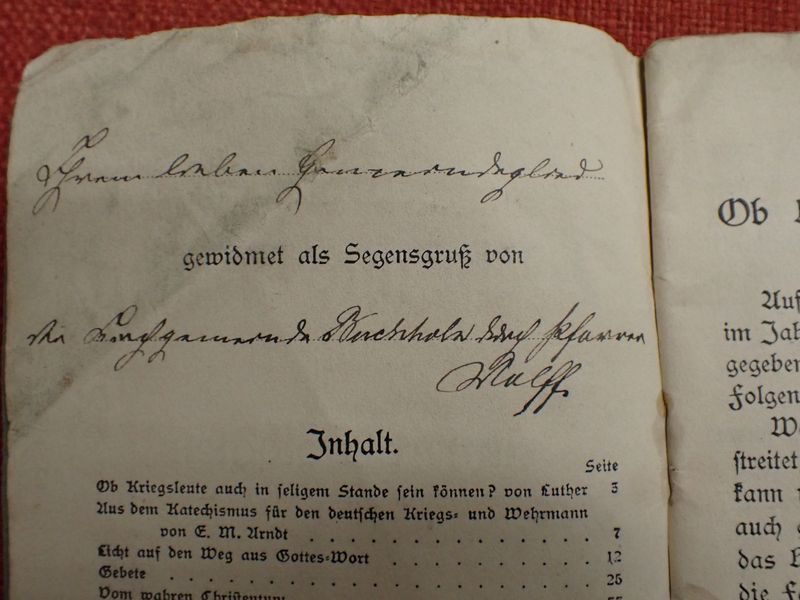 Ihrem lieben Gemeindeglied
gewidmet als Segensgruß von
der Kirchgemeinde Buchholz durch Pfarrer
Wolff.
Inhalt.
Seite
Ob Kriegsleute auch in seligem Stande sein können? von Luther 3
Aus dem Katechismus für den deutschen Kriegs- und Wehrmann
von E. M. Arndt . . . . . . . . . . . . 7
Licht auf den Weg aus Gottes-Wort . . . . . . . . 12
Gebete . . . . . . . . . . . . . . . . . 25
Vom wahren Christentum
Ob
Auf
im Jah
gegeben
Folgen
streitet
kann
auch
das
die